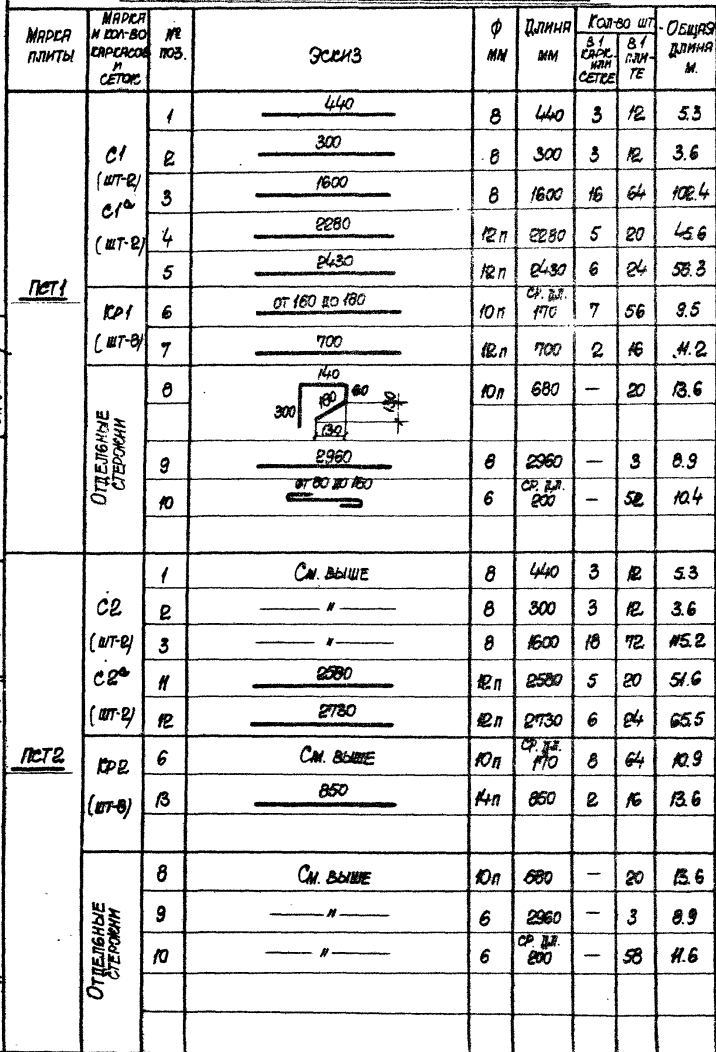 Марка плиты | Марка и кол-во каркасов и сеток | №№ поз. | Эскиз | Ф мм | Длина мм | Кол-во шт. В 1 карк. или сетке | В 1 плите | Общая длина м.
ПСТ1
С1 (шт-2) С1а (шт-2)
1 | 440 | 8 | 440 | 3 | 12 | 5.3
2 | 300 | 8 | 300 | 3 | 12 | 3.6
3 | 1600 | 8 | 1600 | 16 | 64 | 102.4
4 | 2280 | 12п | 2280 | 5 | 20 | 45.6
5 | 2430 | 12п | 2430 | 6 | 24 | 58.3
КР1 (шт-8)
6 | от 160 до 180 | 10п | ср. дл. 170 | 7 | 56 | 9.5
7 | 700 | 12п | 700 | 2 | 16 | 11.2
Отдельные стержни
8 | 140 60 300 180 130 130 | 10п | 680 | — | 20 | 13.6
9 | 2960 | 8 | 2960 | — | 3 | 8.9
10 | от 80 до 160 | 6 | ср. дл. 200 | — | 52 | 10.4
ПСТ2
С2 (шт-2) С2а (шт-2)
1 | См. выше | 8 | 440 | 3 | 12 | 5.3
2 | — " — | 8 | 300 | 3 | 12 | 3.6
3 | — " — | 8 | 1600 | 18 | 72 | 115.2
11 | 2580 | 12п | 2580 | 5 | 20 | 51.6
12 | 2730 | 12п | 2730 | 6 | 24 | 65.5
КР2 (шт-8)
6 | См. выше | 10п | ср. дл. 170 | 8 | 64 | 10.9
13 | 850 | 14п | 850 | 2 | 16 | 13.6
Отдельные стержни
8 | См. выше | 10п | 680 | — | 20 | 13.6
9 | — " — | 6 | 2960 | — | 3 | 8.9
10 | — " — | 6 | ср. дл. 200 | — | 58 | 11.6